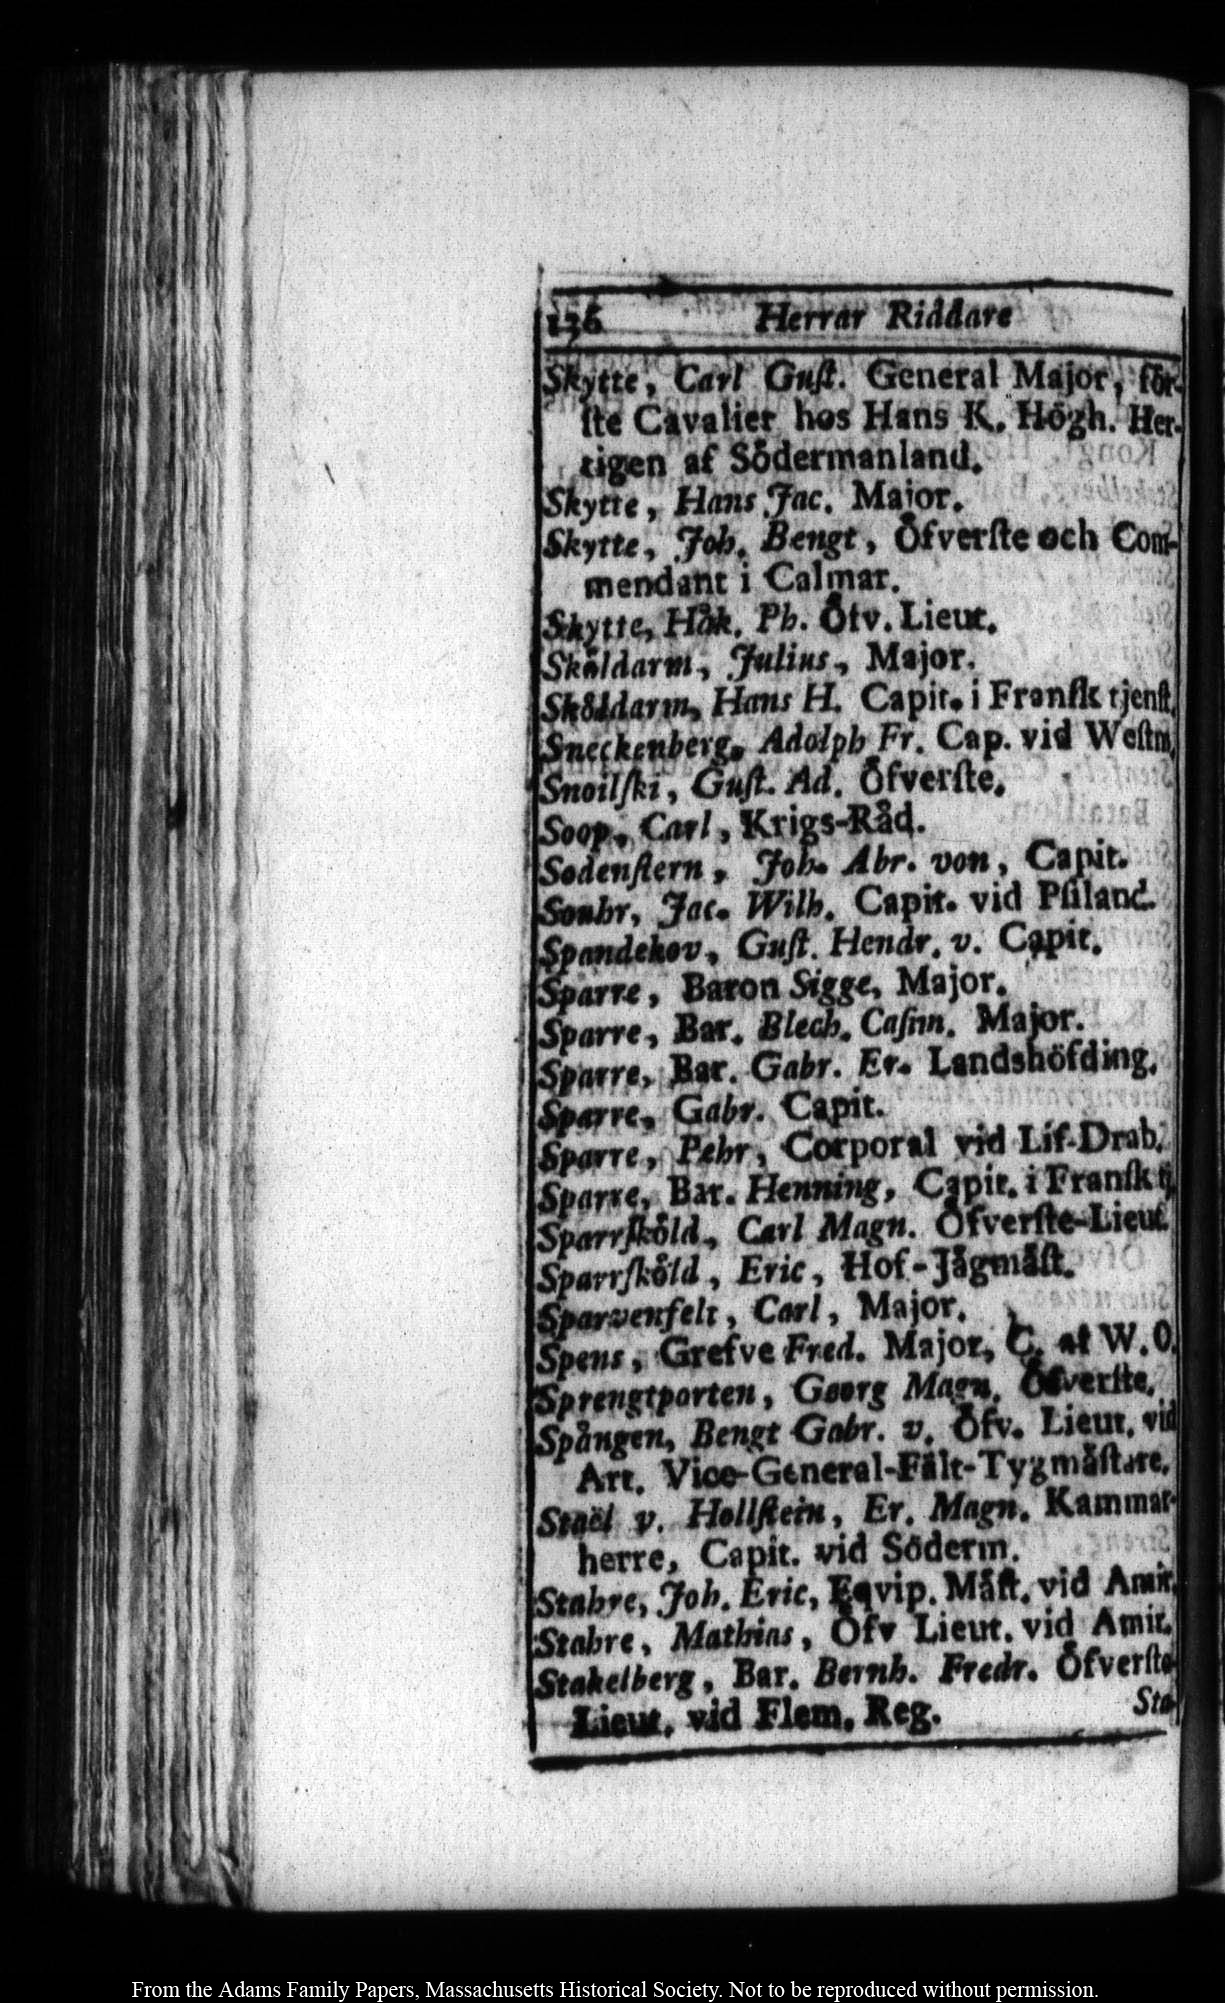 136 Herrar Riddare
Skytte, Carl Guſt. General Major, för-
ſte Cavalier hos Hans K. Högh. Her-
tigen af Södermanland.
Skytte, Hans Jac. Major.
Skytte, Joh. Bengt, Öfverſte och Com-
mendant i Calmar.
Skytte, Håk. Ph. Öfv. Lieut.
Sköldarm, Julius, Major.
Sköldarm, Hans H. Capit. i Franſk tjenſt.
Sneckenberg, Adolph Fr. Cap. vid Weſtm.
Snoilſki, Guſt. Ad. Öfverſte.
Soop, Carl, Krigs-Råd.
Sodenſtern, Joh. Abr. von, Capit.
Souhr, Jac. Wilh. Capit. vid Pſiland.
Spandekov, Guſt. Hendr. v. Capit.
Sparre, Baron Sigge, Major.
Sparre, Bar. Blech. Caſim. Major.
Sparre, Bar. Gabr. Er. Landshöfding.
Sparre, Gabr. Capit.
Sparre, Pehr, Corporal vid Lif-Drab.
Sparre, Bar. Henning, Capit. i Franſk tj.
Sparrſköld, Carl Magn. Öfverſte-Lieut.
Sparrſköld, Eric, Hof-Jägmäſt.
Sparvenfelt, Carl, Major.
Spens, Grefve Fred. Major, C. af W. O.
Sprengtporten, Georg Magn. Öfverſte.
Spången, Bengt Gabr. v. Öfv. Lieut. vid
Art. Vice-General-Fält-Tygmäſtare.
Staël v. Hollſtein, Er. Magn. Kammar-
herre, Capit. vid Söderm.
Stahre, Joh. Eric, Eqvip. Mäſt. vid Amir.
Stahre, Mathias, Öfv Lieut. vid Amir.
Stakelberg, Bar. Bernh. Fredr. Öfverſte-
Lieut. vid Flem. Reg.
Sta-
From the Adams Family Papers, Massachusetts Historical Society. Not to be reproduced without permission.